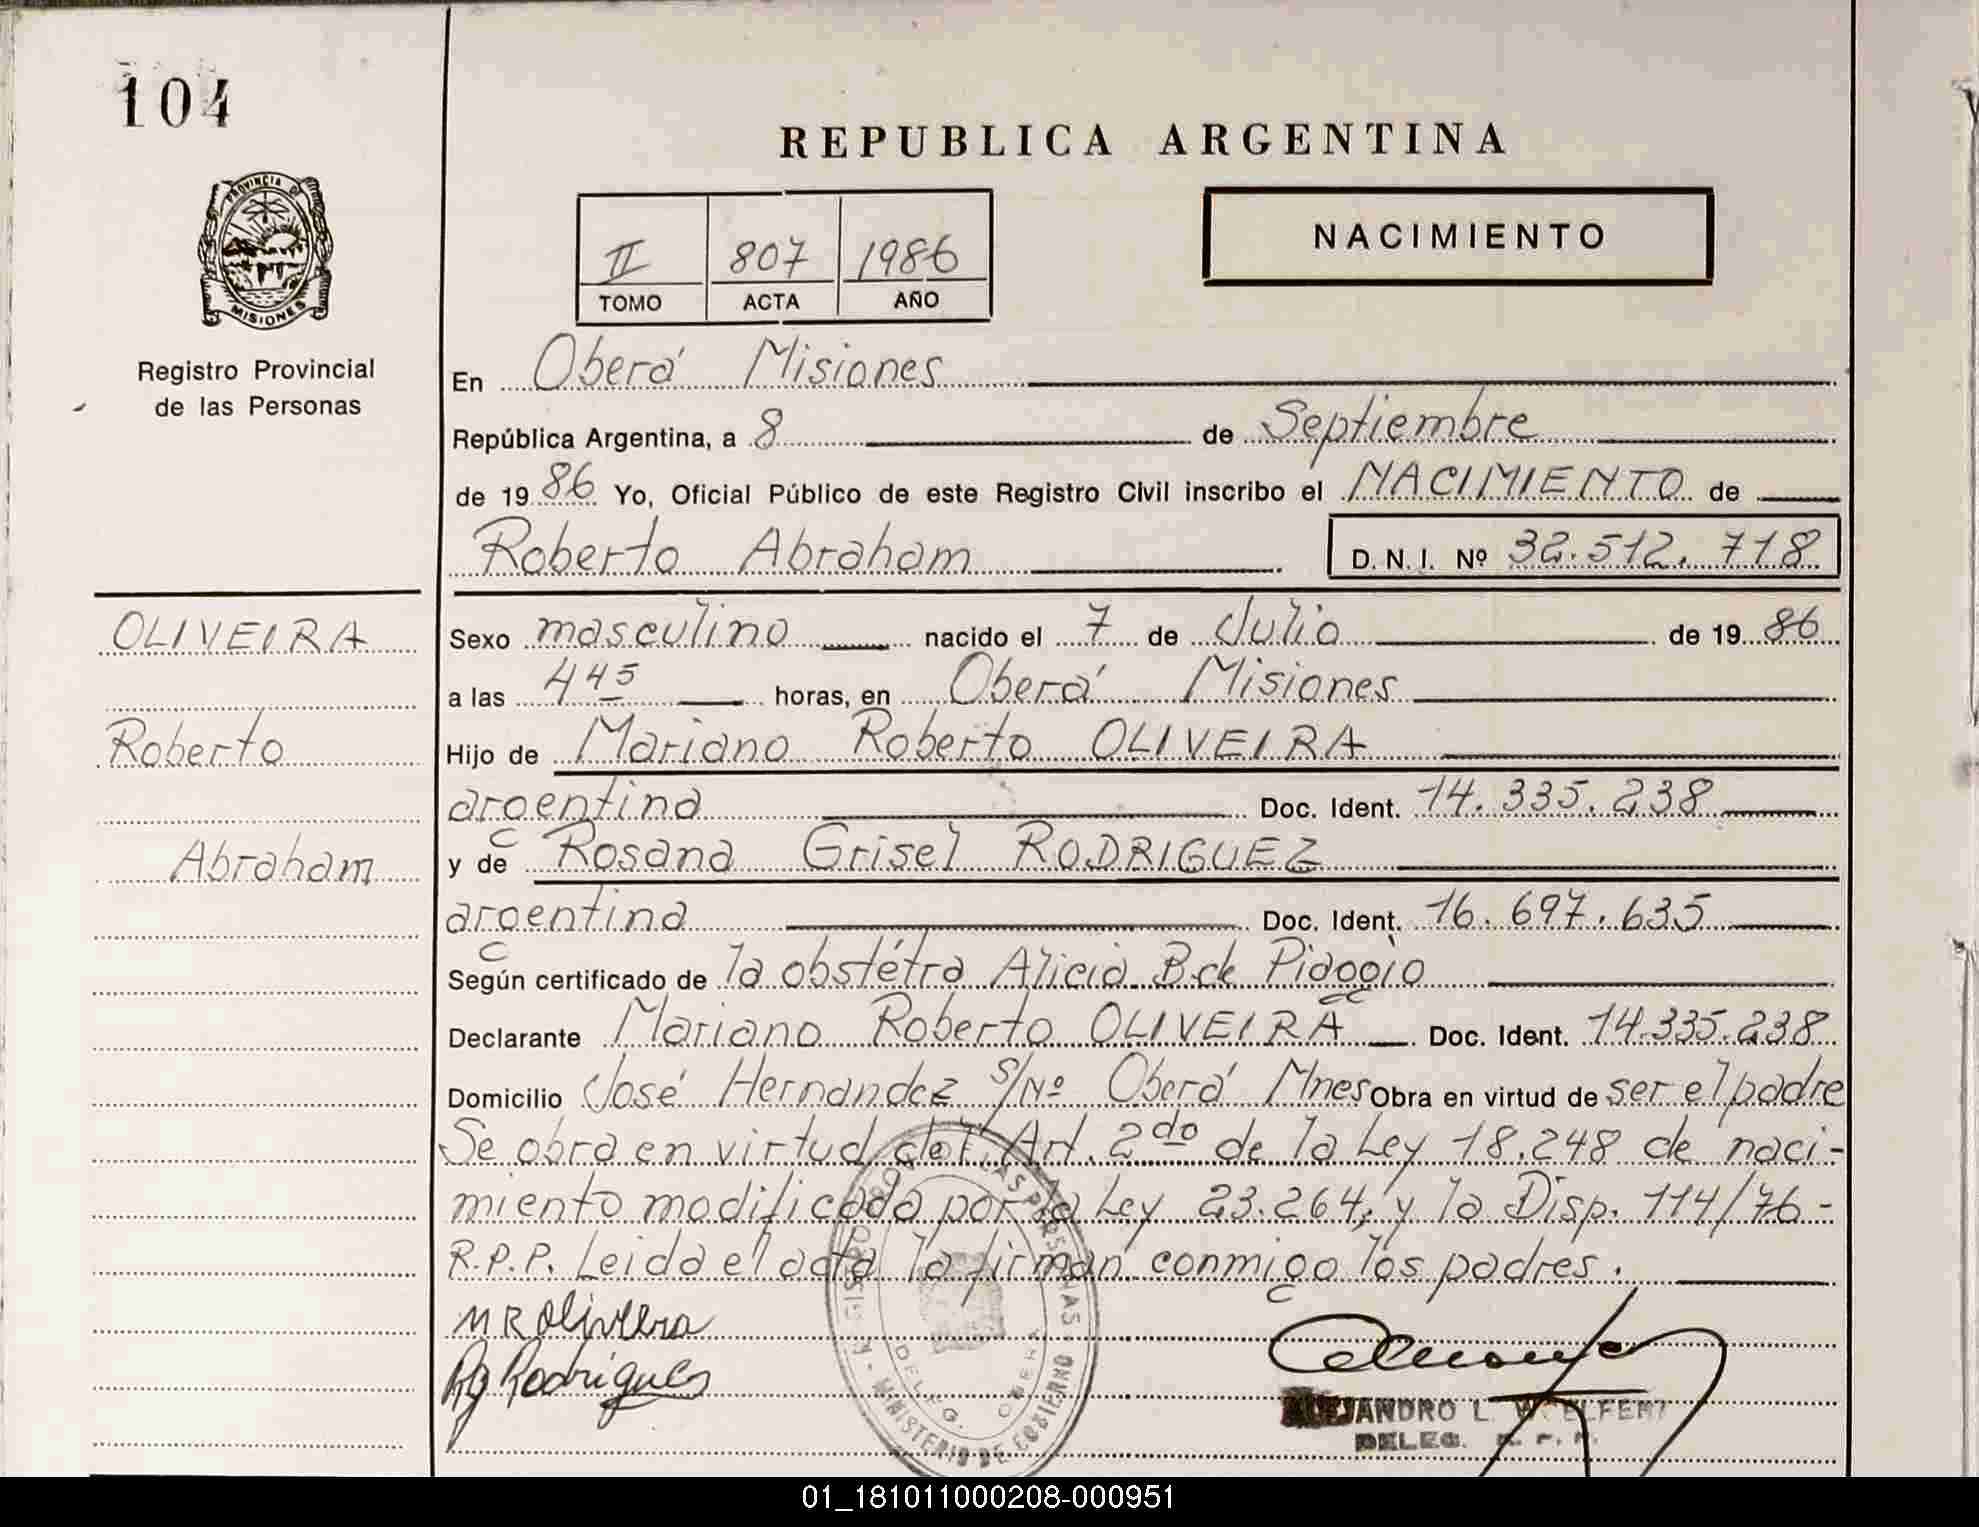 104
REPUBLICA ARGENTINA
PROVINCIA DE
MISIONES
II 807 1986
TOMO ACTA AÑO
NACIMIENTO
Registro Provincial
de las Personas
En Oberá Misiones
República Argentina, a 8 de Septiembre
de 1986 Yo, Oficial Público de este Registro Civil inscribo el NACIMIENTO de
Roberto Abraham D. N. I. Nº 32.512.718
OLIVEIRA
Roberto
Abraham
Sexo masculino nacido el 7 de Julio de 1986
a las 4 45 horas, en Oberá Misiones
Hijo de Mariano Roberto OLIVEIRA
argentina Doc. Ident. 14.335.238
y de Rosana Grisel RODRIGUEZ
argentina Doc. Ident. 16.697.635
Según certificado de la obstétra Alicia B. de Piaggio
Declarante Mariano Roberto OLIVEIRA Doc. Ident. 14.335.238
Domicilio José Hernandez s/Nº Oberá Mnes Obra en virtud de ser el padre
Se obra en virtud del Art. 2do de la Ley 18.248 de naci-
miento modificada por la Ley 23.264, y la Disp. 114/76-
R.P.P. Leida el acta la firman conmigo los padres.
M R Oliveira
RG Rodrigues
MINISTERIO DE GOBIERNO
DELEG. OBERA
ALEJANDRO L.
DELEG. R. P. P.
01_181011000208-000951